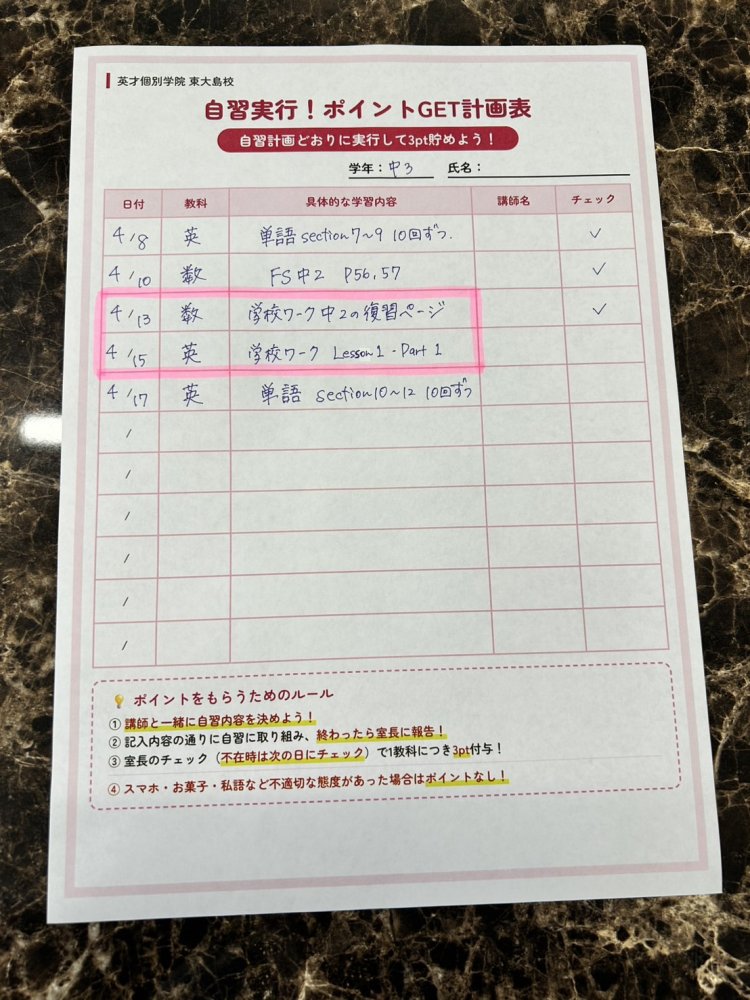 英才個別学院 東大島校
自習実行！ポイントGET計画表
自習計画どおりに実行して3pt貯めよう！
学年：中3 氏名：
日付 教科 具体的な学習内容 講師名 チェック
4/8 英 単語 section7〜9 10回ずつ. ✓
4/10 数 FS 中2 P56,57 ✓
4/13 数 学校ワーク 中2の復習ページ ✓
4/15 英 学校ワーク Lesson1 - Part 1
4/17 英 単語 section10〜12 10回ずつ
/
/
/
/
/
/
ポイントをもらうためのルール
① 講師と一緒に自習内容を決めよう！
② 記入内容の通りに自習に取り組み、終わったら室長に報告！
③ 室長のチェック（不在時は次の日にチェック）で1教科につき3pt付与！
④ スマホ・お菓子・私語など不適切な態度があった場合はポイントなし！